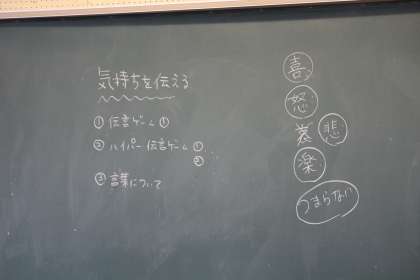 気持ちを伝える
① 伝言ゲーム ①
② ハイパー伝言ゲーム ①
②
③ 言葉について
喜
怒
哀 悲
楽
つまらない